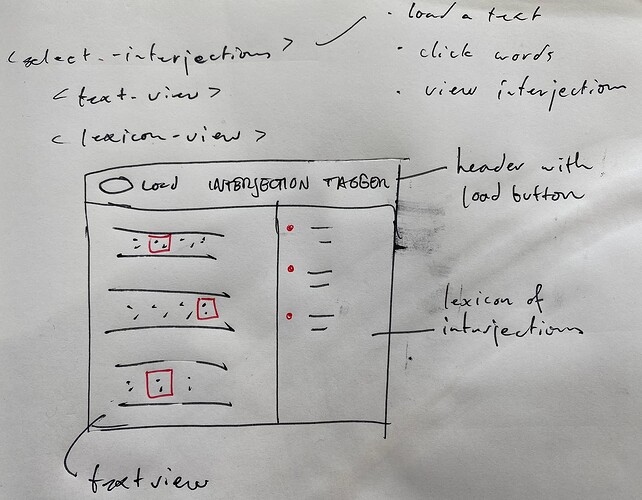 <select-interjections>
<text-view>
<lexicon-view>
· load a text
· click words
· view interjections
Load INTERJECTION TAGGER
header with
load button
lexicon of
interjections
text view